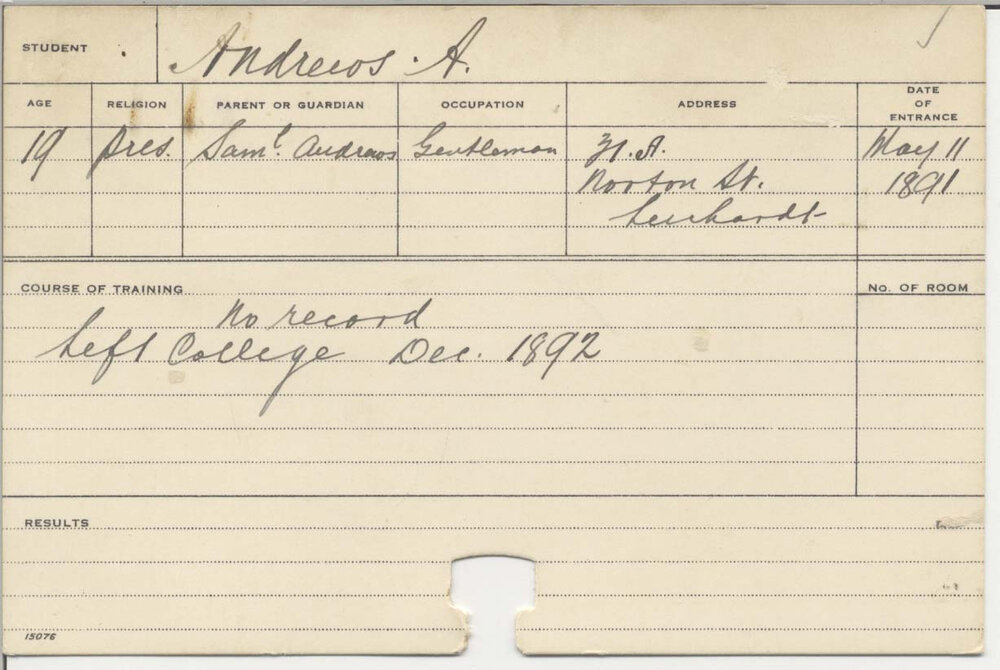 STUDENT Andrews . A.
AGE RELIGION PARENT OR GUARDIAN OCCUPATION ADDRESS DATE OF ENTRANCE
19 Pres. Saml. Andrews Gentleman May 11
Norton St. 1891
COURSE OF TRAINING No. OF ROOM
No record
Left College Dec. 1892
RESULTS
15076